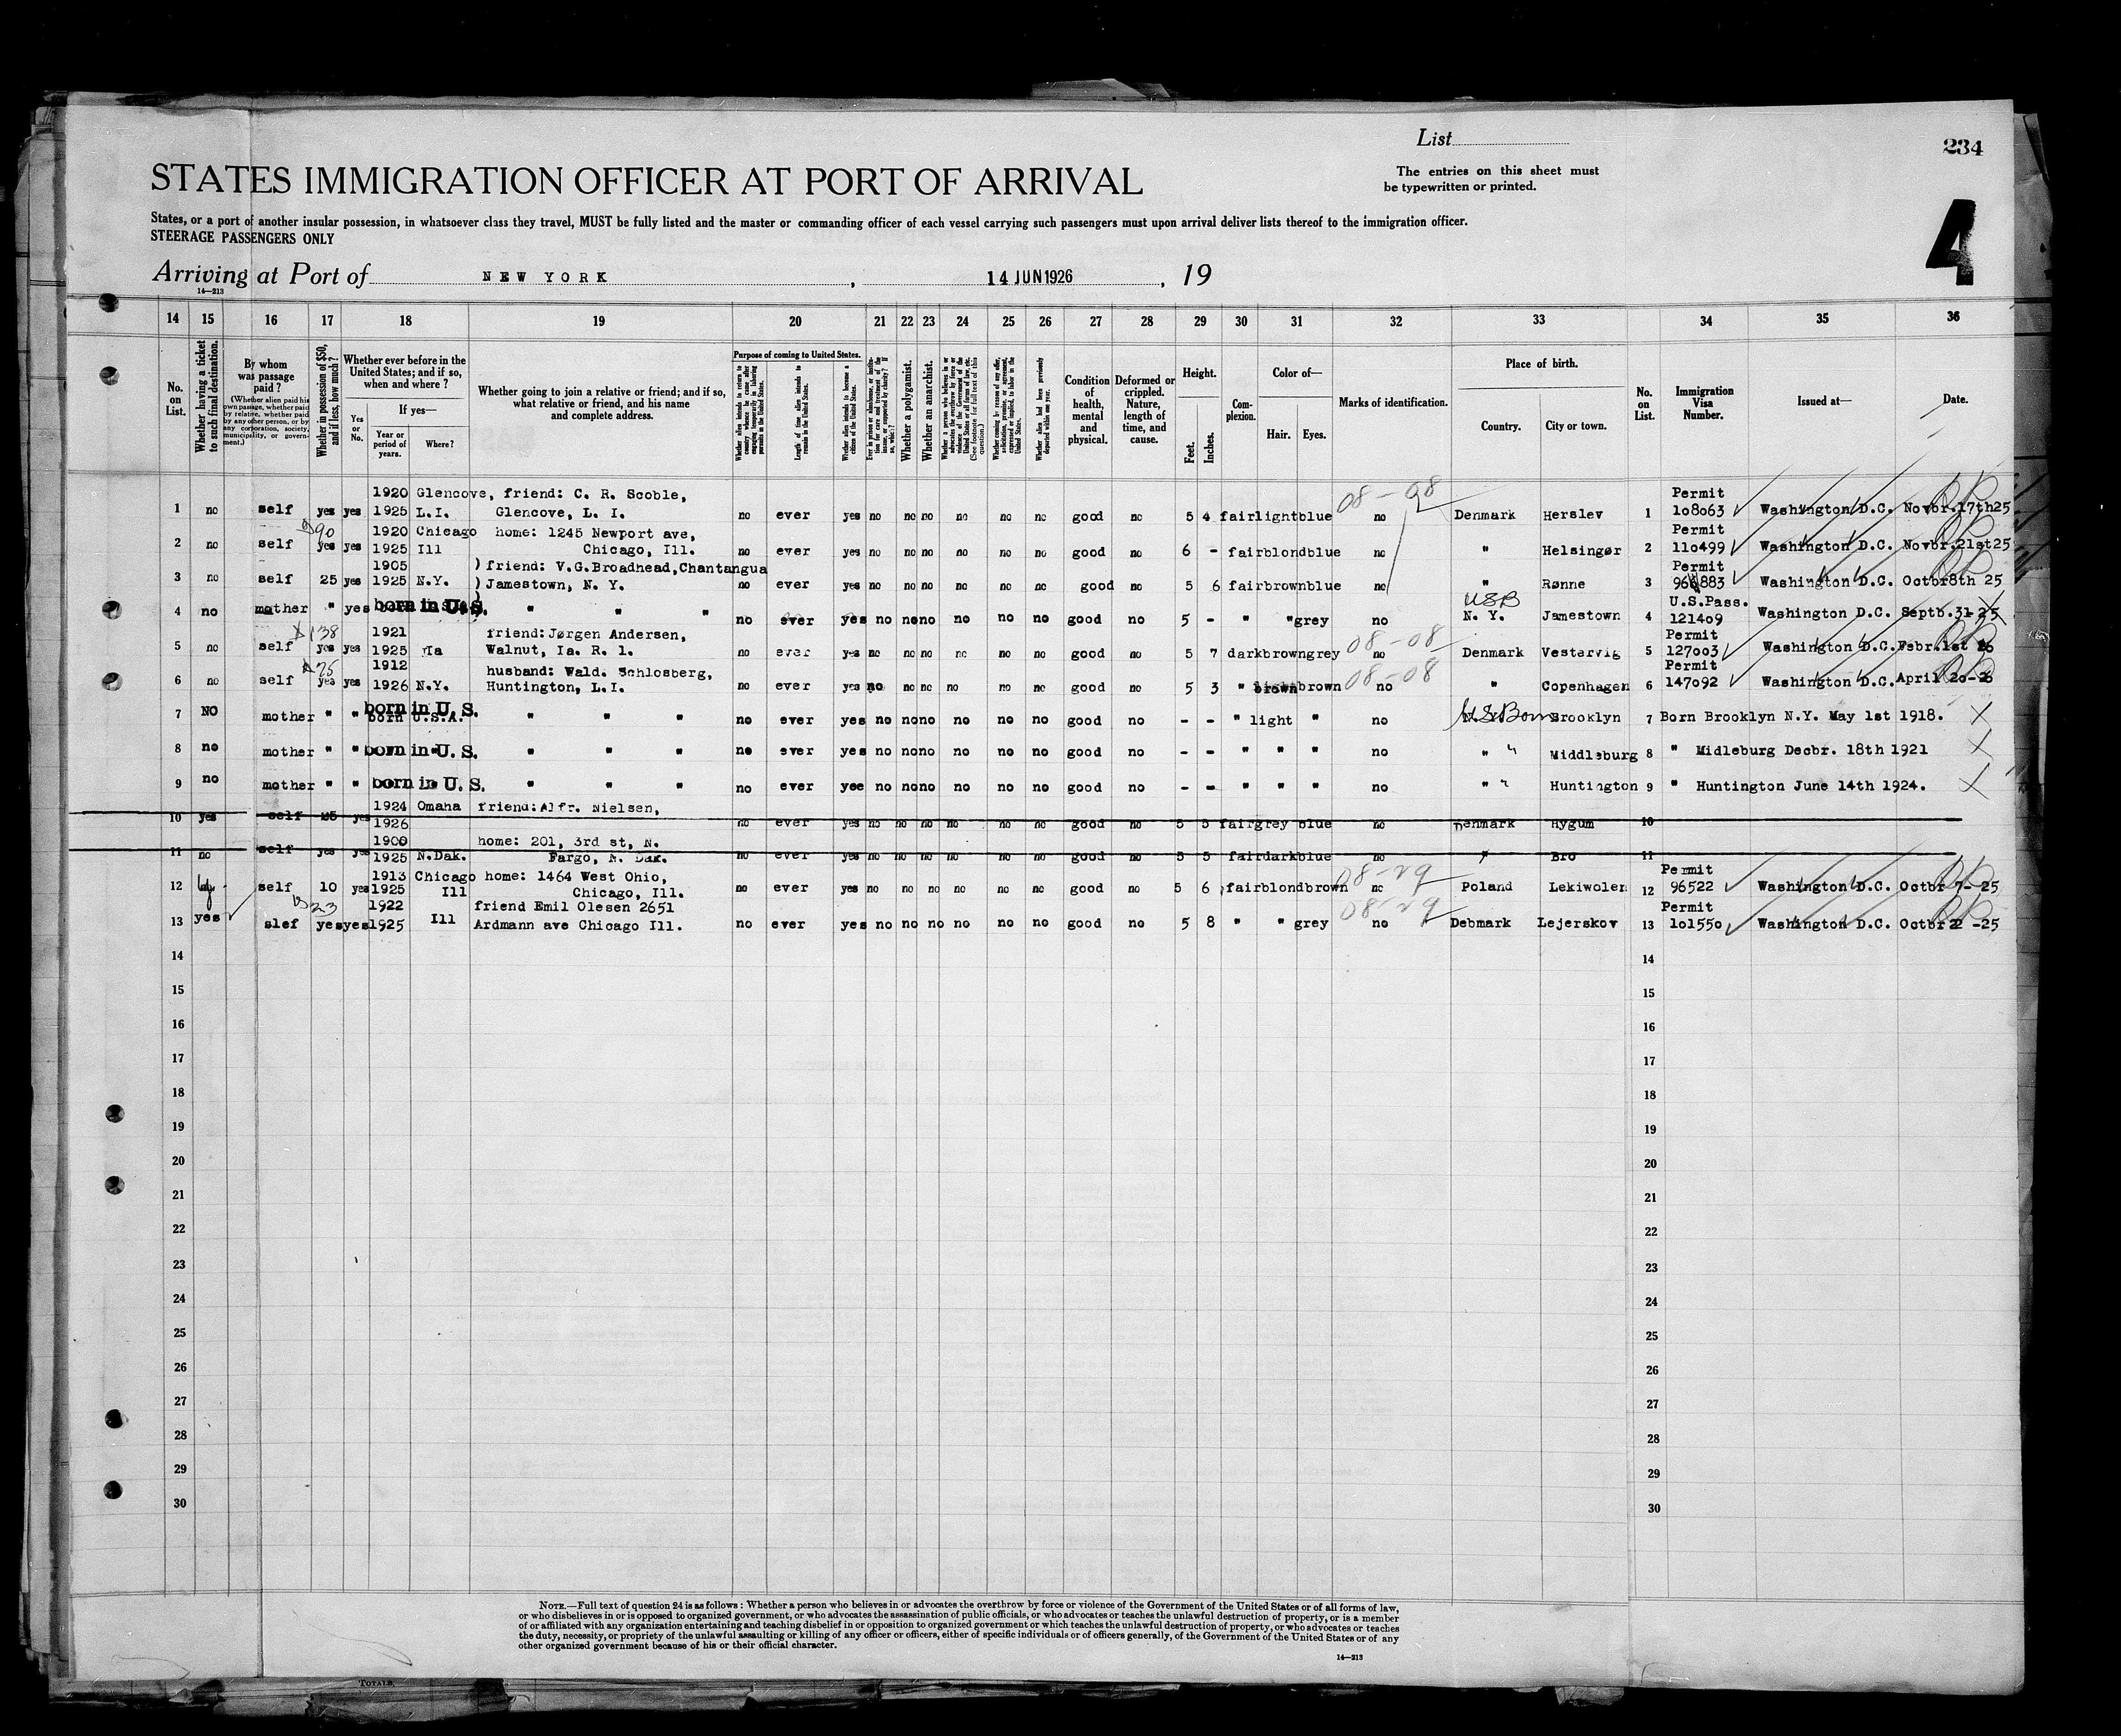 List
234
The entries on this sheet must
be typewritten or printed.
STATES IMMIGRATION OFFICER AT PORT OF ARRIVAL
States, or a port of another insular possession, in whatsoever class they travel, MUST be fully listed and the master or commanding officer of each vessel carrying such passengers must upon arrival deliver lists thereof to the immigration officer.
STEERAGE PASSENGERS ONLY
4
Arriving at Port of NEW YORK , 14 JUN 1926 , 19
14—213
14 15 16 17 18 19 20 21 22 23 24 25 26 27 28 29 30 31 32 33 34 35 36
No. on List.
Whether having a ticket to such final destination.
By whom was passage paid?
(Whether alien paid his own passage, whether paid by relative, whether paid by any other person, or by any corporation, society, municipality, or government.)
Whether in possession of $50, and if less, how much?
Whether ever before in the United States; and if so, when and where?
Yes or No.
If yes—
Year or period of years.
Where?
Whether going to join a relative or friend; and if so, what relative or friend, and his name and complete address.
Purpose of coming to United States.
Whether alien intends to return to country whence he came after engaging temporarily in laboring pursuits in the United States.
Length of time alien intends to remain in the United States.
Whether alien intends to become a citizen of the United States.
Ever in prison or almshouse, or institution for care and treatment of the insane, or supported by charity? If so, which?
Whether a polygamist.
Whether an anarchist.
Whether a person who believes in or advocates the overthrow by force or violence of the Government of the United States or all forms of law, etc. (See footnote for full text of this question.)
Whether coming by reason of any offer, solicitation, promise, or agreement, expressed or implied, to labor in the United States.
Whether alien had been previously deported within one year.
Condition of health, mental and physical.
Deformed or crippled. Nature, length of time, and cause.
Height.
Feet. Inches.
Complexion.
Color of—
Hair. Eyes.
Marks of identification.
Place of birth.
Country. City or town.
No. on List.
Immigration Visa Number.
Issued at—
Date.
1920 Glencove, friend: C. R. Scoble, 08-08 Permit
1 no self yes yes 1925 L.I. Glencove, L. I. no ever yes no no no no no no good no 5 4 fair light blue no Denmark Herslev 1 108063 Washington D.C. Novbr.17th25
90 1920 Chicago home: 1245 Newport ave, Permit
2 no self yes yes 1925 Ill Chicago, Ill. no ever yes no no no no no no good no 6 - fair blond blue no " Helsingør 2 110499 Washington D.C. Novbr.21st25
1905 )friend: V.G.Broadhead,Chantangua Permit
3 no self 25 yes 1925 N.Y. )Jamestown, N. Y. no ever yes no no no no no no good no 5 6 fair brown blue no " Rønne 3 96883 Washington D.C. Octbr8th 25
USB U.S.Pass.
4 no mother " yes born in U.S. " " " no ever yes no no no no no no good no 5 - " " grey no N. Y. Jamestown 4 121409 Washington D.C. Septb.31-25
138 1921 friend:Jørgen Andersen, 08-08 Permit
5 no self yes yes 1925 Ia Walnut, Ia. R. 1. no ever yes no no no no no no good no 5 7 dark brown grey no Denmark Vestervig 5 127003 Washington D.C. Febr.1st 26
75 1912 husband: Wald. Schlosberg, 08-08 Permit
6 no self yes yes 1926 N.Y. Huntington, L.I. no ever yes no no no no no no good no 5 3 " brown brown no " Copenhagen 6 147092 Washington D.C. April 20-26
7 NO mother " " born in U.S. born U.S.A. " " " no ever yes no no no no no no good no - - " light " no U.S. Born Brooklyn 7 Born Brooklyn N.Y. May 1st 1918.
8 no mother " " born in U.S. " " " no ever yes no no no no no no good no - - " " " no " " Middleburg 8 " Midleburg Decbr. 18th 1921
9 no mother " " born in U.S. " " " no ever yee no no no no no no good no - - " " " no " " Huntington 9 " Huntington June 14th 1924.
1924 Omaha friend:Alfr. Nielsen,
10 yes self yes 1926 no ever yes no no no no no no good no 5 5 fair grey blue no Denmark Hygum 10
1900 home: 201, 3rd st, N.
11 no self yes yes 1925 N.Dak. Fargo, N. Dak. no ever yes no no no no no no good no 5 5 fair dark blue no Bro 11
1913 Chicago home: 1464 West Ohio, 08-29 Permit
12 self 10 yes 1925 Ill Chicago, Ill. no ever yes no no no no no no good no 5 6 fair blond brown no Poland Lekiwolen 12 96522 Washington D.C. Octbr 7- 25
23 1922 friend Emil Olesen 2651 08-29 Permit
13 yes slef yes yes 1925 Ill Ardmann ave Chicago Ill. no ever yes no no no no no no good no 5 8 " " grey no Debmark Lejerskov 13 101550 Washington D.C. Octbr 2 -25
14 14
15 15
16 16
17 17
18 18
19 19
20 20
21 21
22 22
23 23
24 24
25 25
26 26
27 27
28 28
29 29
30 30
NOTE.—Full text of question 24 is as follows: Whether a person who believes in or advocates the overthrow by force or violence of the Government of the United States or of all forms of law,
or who disbelieves in or is opposed to organized government, or who advocates the assassination of public officials, or who advocates or teaches the unlawful destruction of property, or is a member
of or affiliated with any organization entertaining and teaching disbelief in or opposition to organized government or which teaches the unlawful destruction of property, or who advocates or teaches
the duty, necessity, or propriety of the unlawful assaulting or killing of any officer or officers, either of specific individuals or of officers generally, of the Government of the United States or of any
other organized government because of his or their official character.
14—213
TOTALS